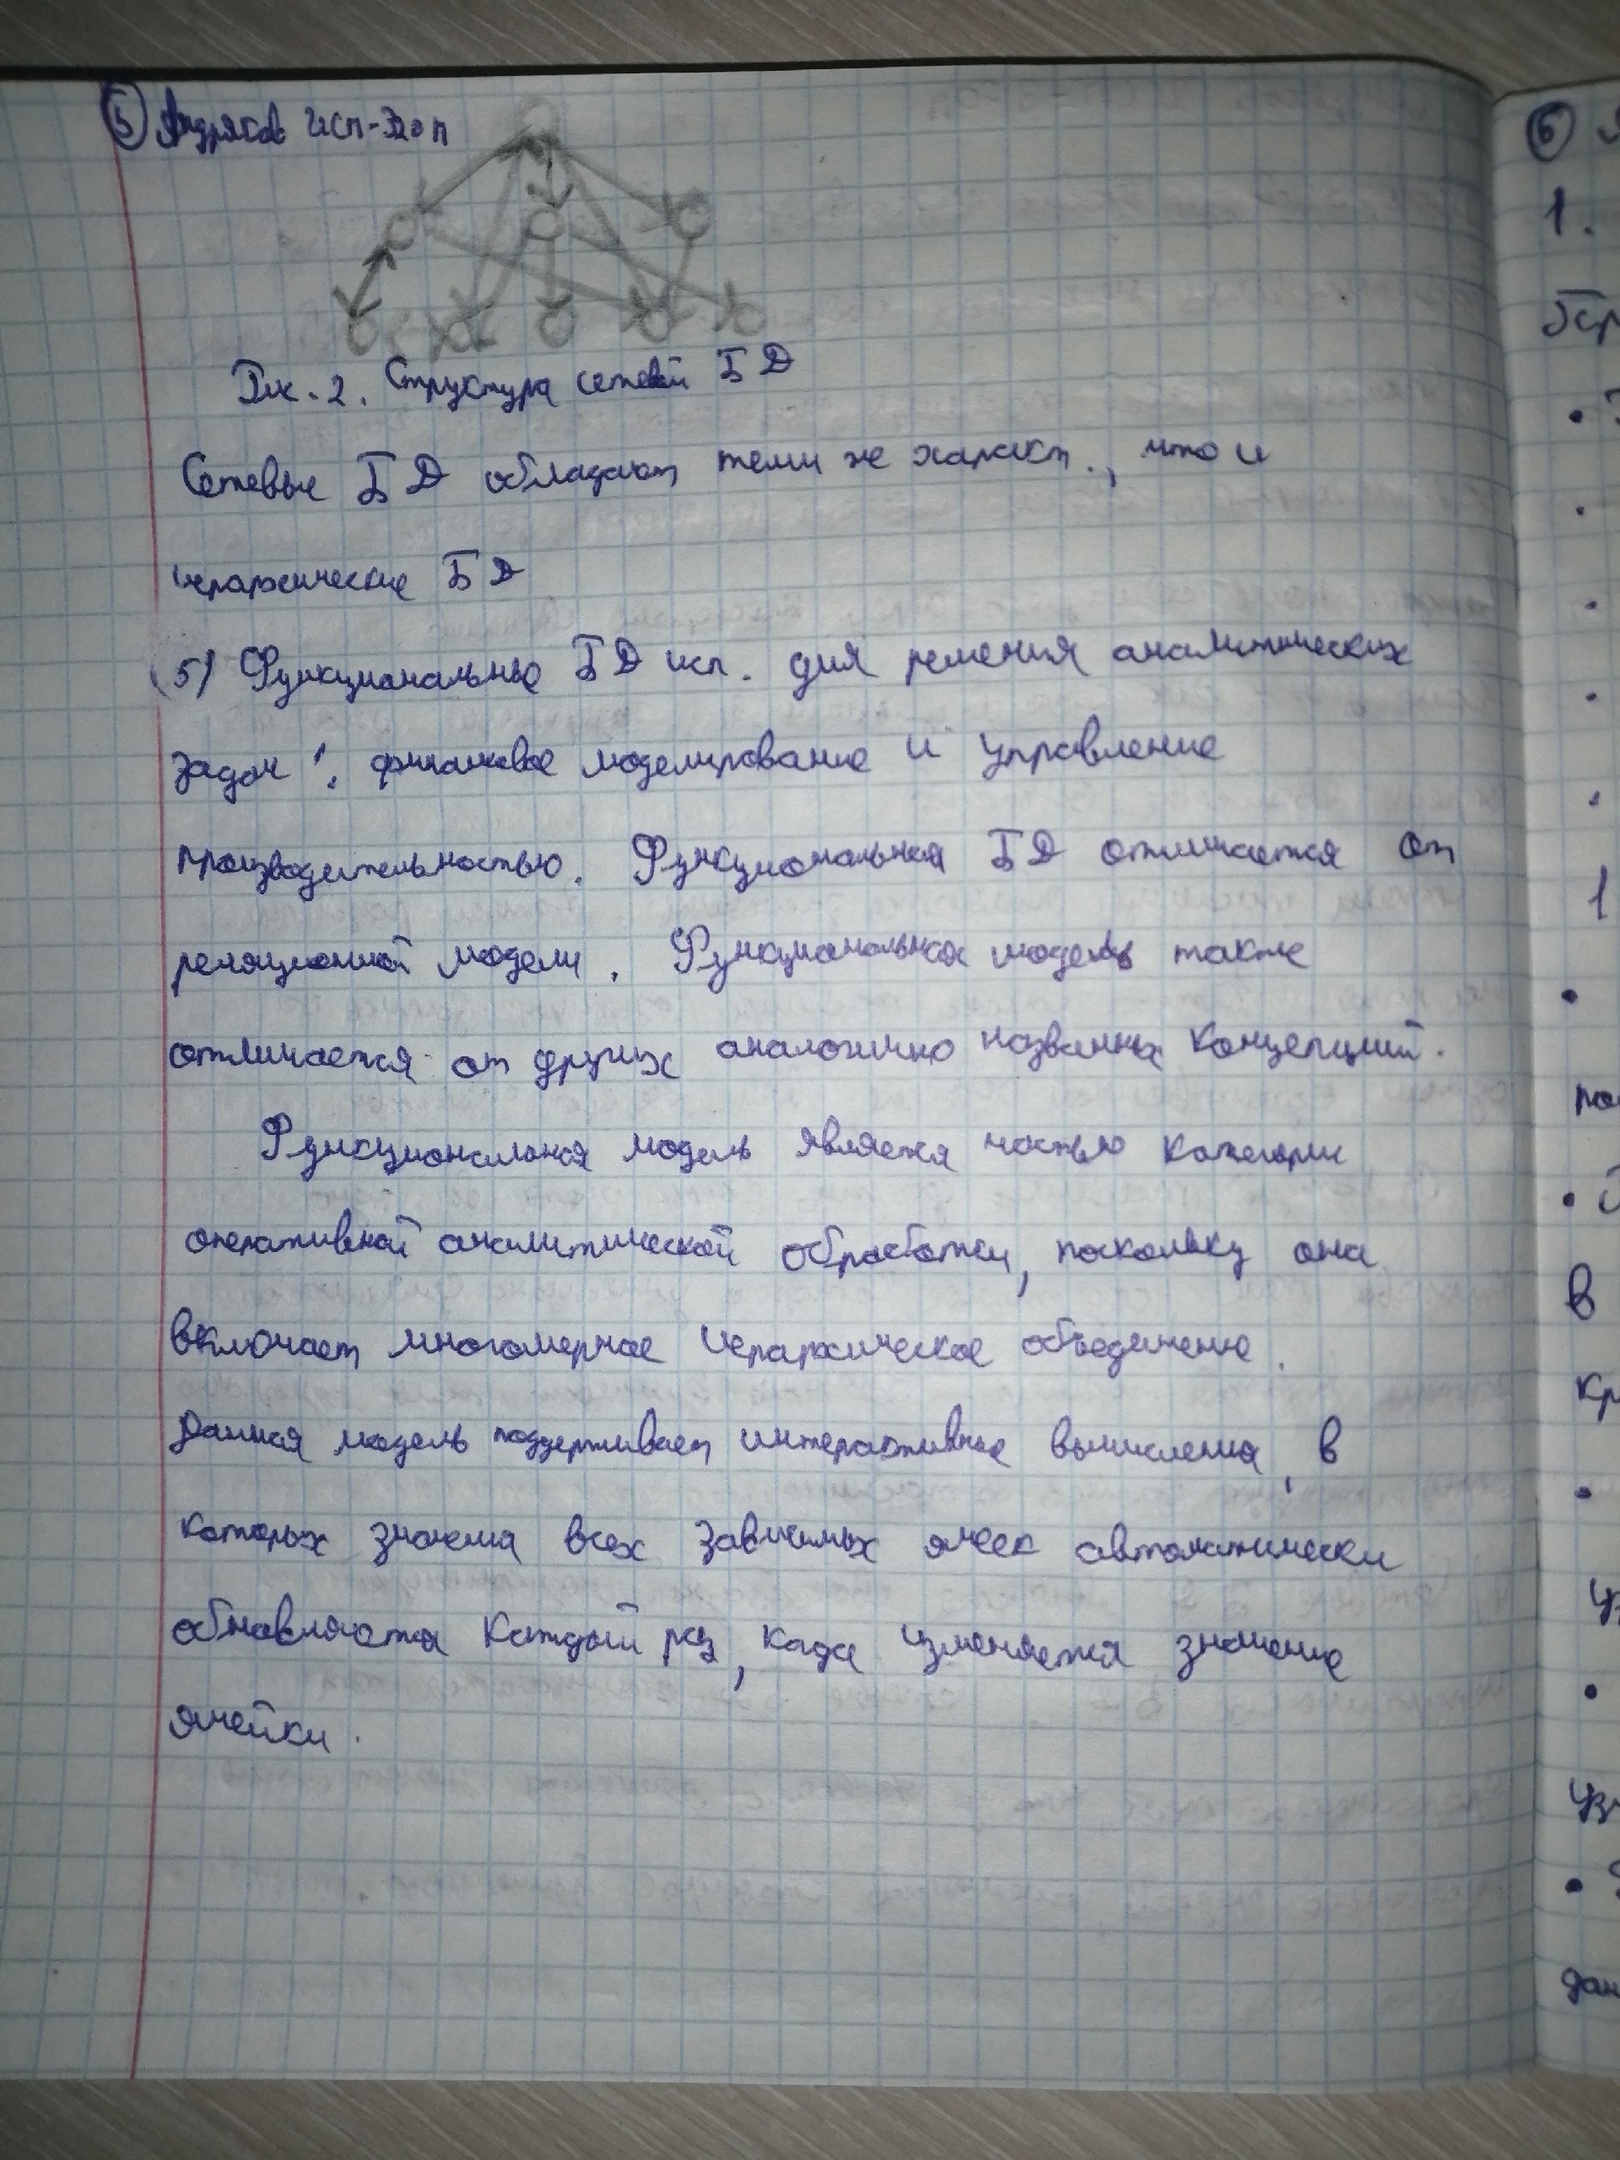 5 Андряков ИСП-320п
Рис. 2. Структура сетевой БД
Сетевые БД обладают теми же характ., что и
иерархические БД
5) Функциональные БД исп. для решения аналитических
задач: финансовое моделирование и управление
производительностью. Функциональная БД отличается от
реляционной модели. Функциональная модель также
отличается от других аналогично названных концепций.
Функциональная модель является частью категории
оперативной аналитической обработки, поскольку она
включает многомерное иерархическое объединение.
Данная модель поддерживает интерактивные вычисления, в
которых значения всех зависимых ячеек автоматически
обновляются каждый раз, когда изменяется значение
ячейки.
6
1.
1
В